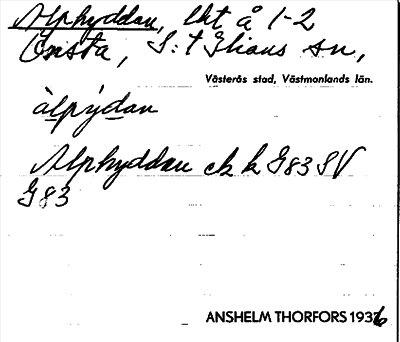 Alphyddan, lht å 1-2
Önsta, S:t Ilians sn,
Västerås stad, Västmonlands län.
àlpýdan
Alphyddan ek k G83 SV
G83
ANSHELM THORFORS 1936